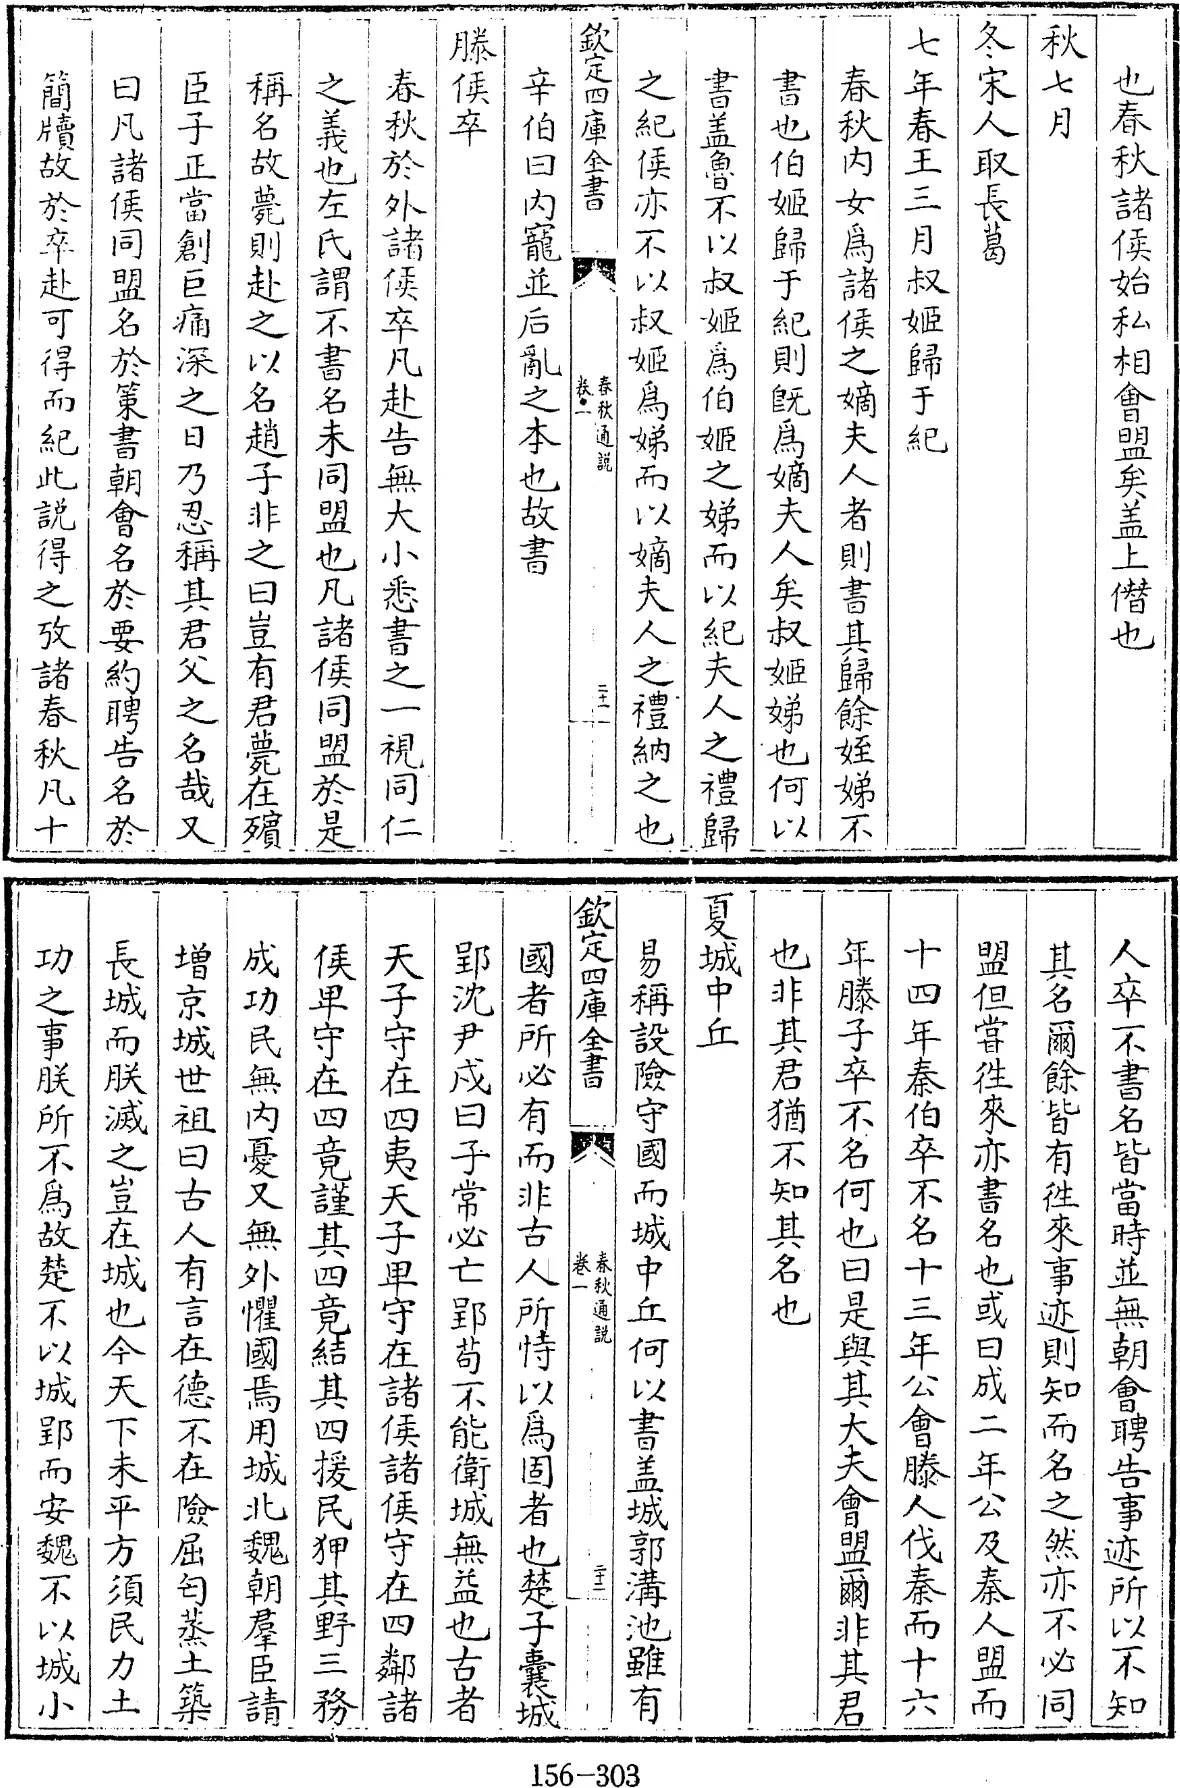 也春秋諸侯始私相會盟矣盖上僭也
秋七月
冬宋人取長葛
七年春王三月叔姬歸于紀
春秋内女爲諸侯之嫡夫人者則書其歸餘姪娣不
書也伯姬歸于紀則既爲嫡夫人矣叔姬娣也何以
書盖魯不以叔姬爲伯姬之娣而以紀夫人之禮歸
之紀侯亦不以叔姬爲娣而以嫡夫人之禮納之也
欽定四庫全書
春秋通説
卷一
二十一
辛伯曰内寵並后亂之本也故書
滕侯卒
春秋於外諸侯卒凡赴告無大小悉書之一視同仁
之義也左氏謂不書名未同盟也凡諸侯同盟於是
稱名故薨則赴之以名趙子非之曰豈有君薨在殯
臣子正當創巨痛深之日乃忍稱其君父之名哉又
曰凡諸侯同盟名於策書朝會名於要約聘告名於
簡牘故於卒赴可得而紀此説得之攷諸春秋凡十
人卒不書名皆當時並無朝會聘告事迹所以不知
其名爾餘皆有徃來事迹則知而名之然亦不必同
盟但嘗徃來亦書名也或曰成二年公及秦人盟而
十四年秦伯卒不名十三年公會滕人伐秦而十六
年滕子卒不名何也曰是與其大夫會盟爾非其君
也非其君猶不知其名也
夏城中丘
易稱設險守國而城中丘何以書盖城郭溝池雖有
欽定四庫全書
春秋通説
卷一
二十二
國者所必有而非古人所恃以爲固者也楚子囊城
郢沈尹戍曰子常必亡郢苟不能衛城無益也古者
天子守在四夷天子卑守在諸侯諸侯守在四鄰諸
侯卑守在四竟謹其四竟結其四援民狎其野三務
成功民無内憂又無外懼國焉用城北魏朝羣臣請
增京城世祖曰古人有言在德不在險屈匄蒸土築
長城而朕滅之豈在城也今天下未平方須民力土
功之事朕所不爲故楚不以城郢而安魏不以城小
156-303